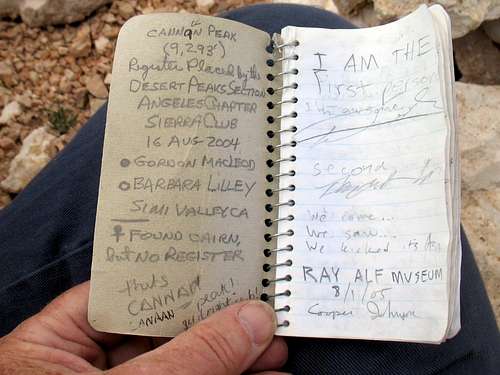 CANNAN PEAK
(9,293')
Register Placed by the
DESERT PEAKS SECTION
ANGELES CHAPTER
SIERRA CLUB
16 AUG 2004
GORDON MACLEOD
BARBARA LILLEY
SIMI VALLEY CA
FOUND CAIRN,
but NO REGISTER
thats
CANNAN peak!
CANAAN get it right
I AM THE
First person
I'm awesome
second
We came...
We saw...
We kicked its
RAY ALF MUSEUM
8/1/05
Cooper